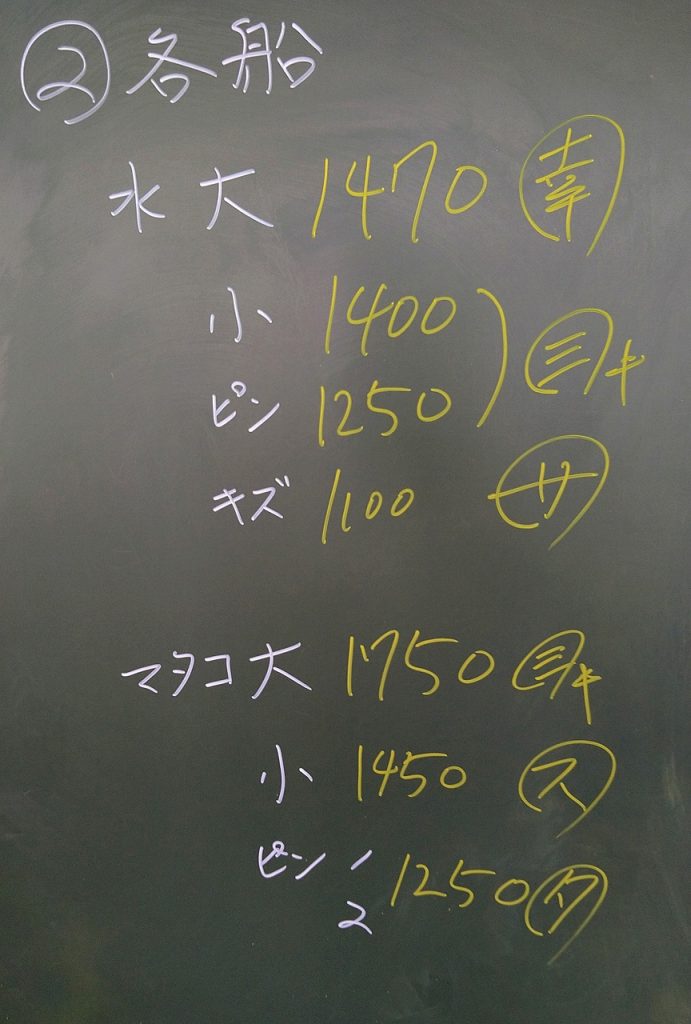 ② 各船
水 大 1470 幸
小 1400
ピン 1250 三キ
キズ 1100 サ
マタコ 大 1750 三キ
小 1450 ス
ピン 1 2 1250